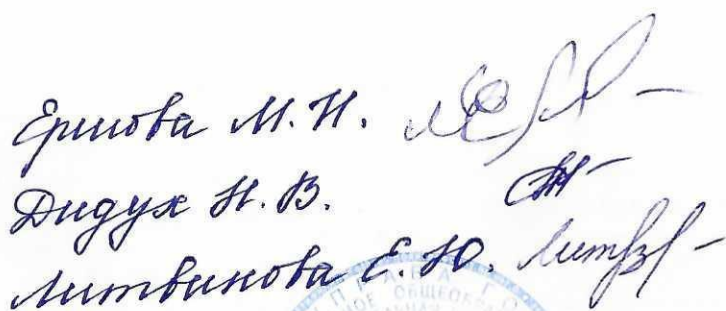 Ершова М.Н.
Дидух Н.В.
Литвинова Е.Ю.